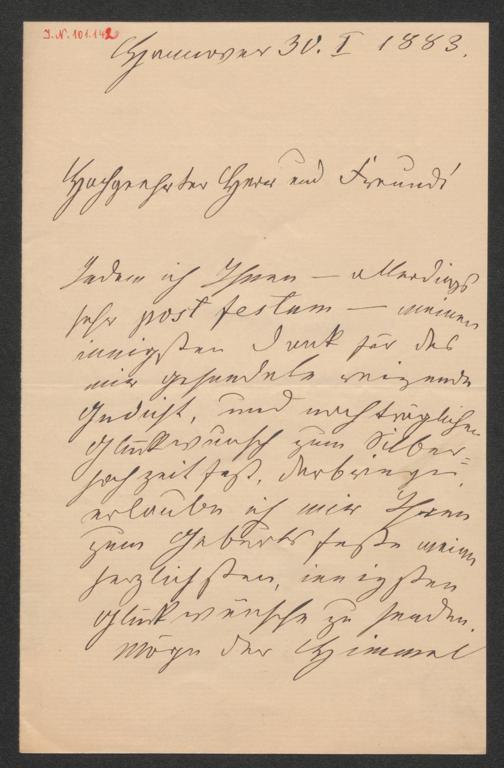 I.N. 101.142
Hannover 30. I 1883.
Hochgeehrter Herr und Freund!
Indem ich Ihnen — allerdings
sehr post festum — meinen
innigsten Dank für das
mir gesendete reizende
Gedicht, und nachträglichen
Glückwunsch zum Silber=
hochzeitfest, darbringe,
erlaube ich mir Ihnen
zum Geburtsfeste meine
herzlichsten, innigsten
Glückwünsche zu senden.
Möge der Himmel